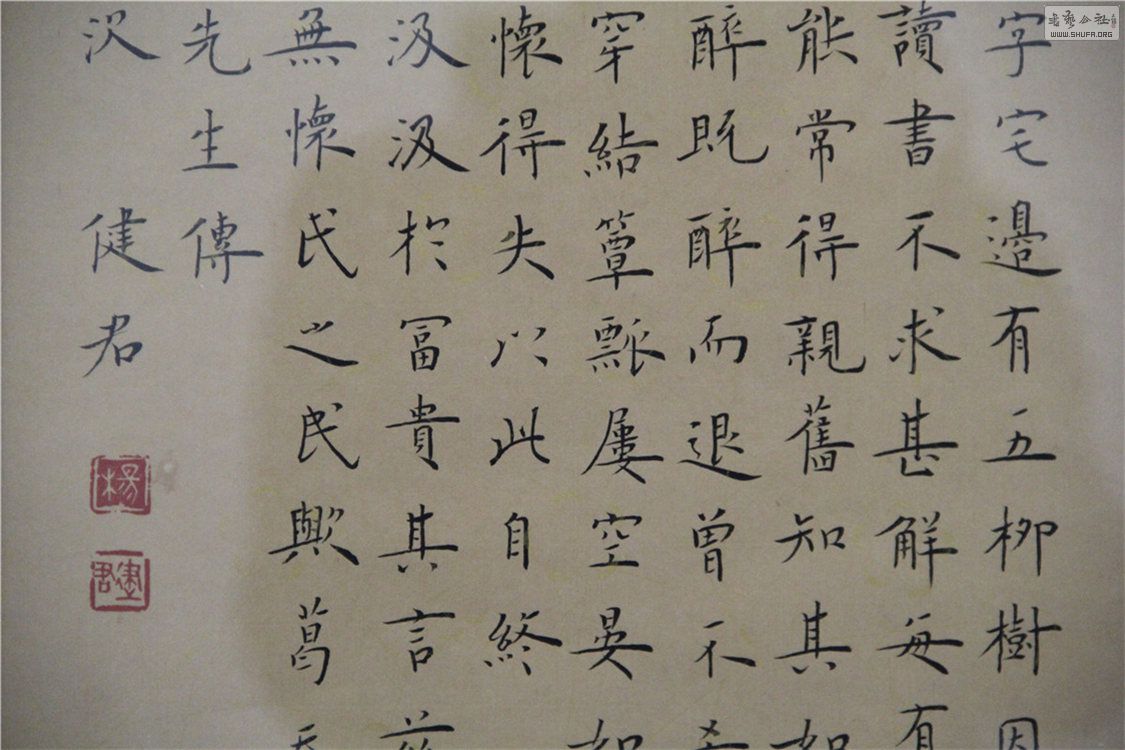 字宅邊有五柳樹因
讀書不求甚解每有
能常得親舊知其如
醉既醉而退曾不吝
穿結簞瓢屢空晏如
懷得失以此自終
汲汲於富貴其言茲
無懷氏之民歟葛天
先生傳
健君
楊
健君
書藝公社
WWW.SHUFA.ORG